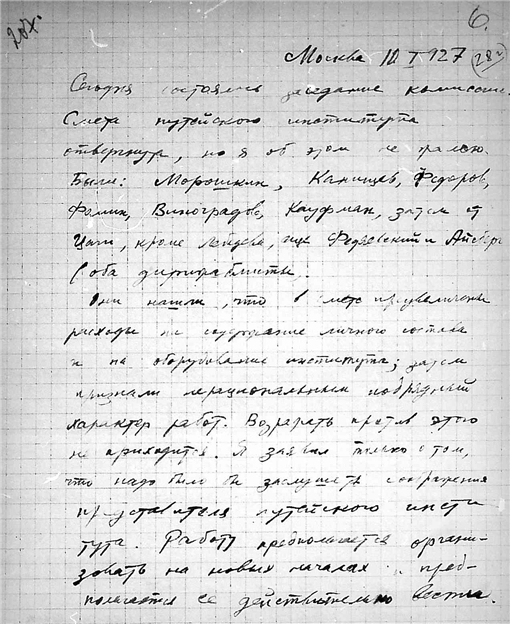 207.
6.
Москва 10 I 927 (28г)
Сегодня состоялось заседание комиссии.
Смета путейского института
отвергнута, но я об этом не жалею.
Были: Морошкин, Канищев, Федоров,
Фомин, Виноградов, Кауфман, затем от
Цаги, кроме инж Федяевский и
(оба дирижаблисты).
Они нашли, что в смете преувеличены
расходы на содержание личного состава
и на оборудование института; затем
признали нерациональным подрядный
характер работ. Возражать против этого
не приходится. Я заявил только о том,
что надо было бы заслушать соображения
представителя путейского инсти
тута. Работу предполагается органи-
зовать на новых началах и пред-
полагается ее действительно вести.